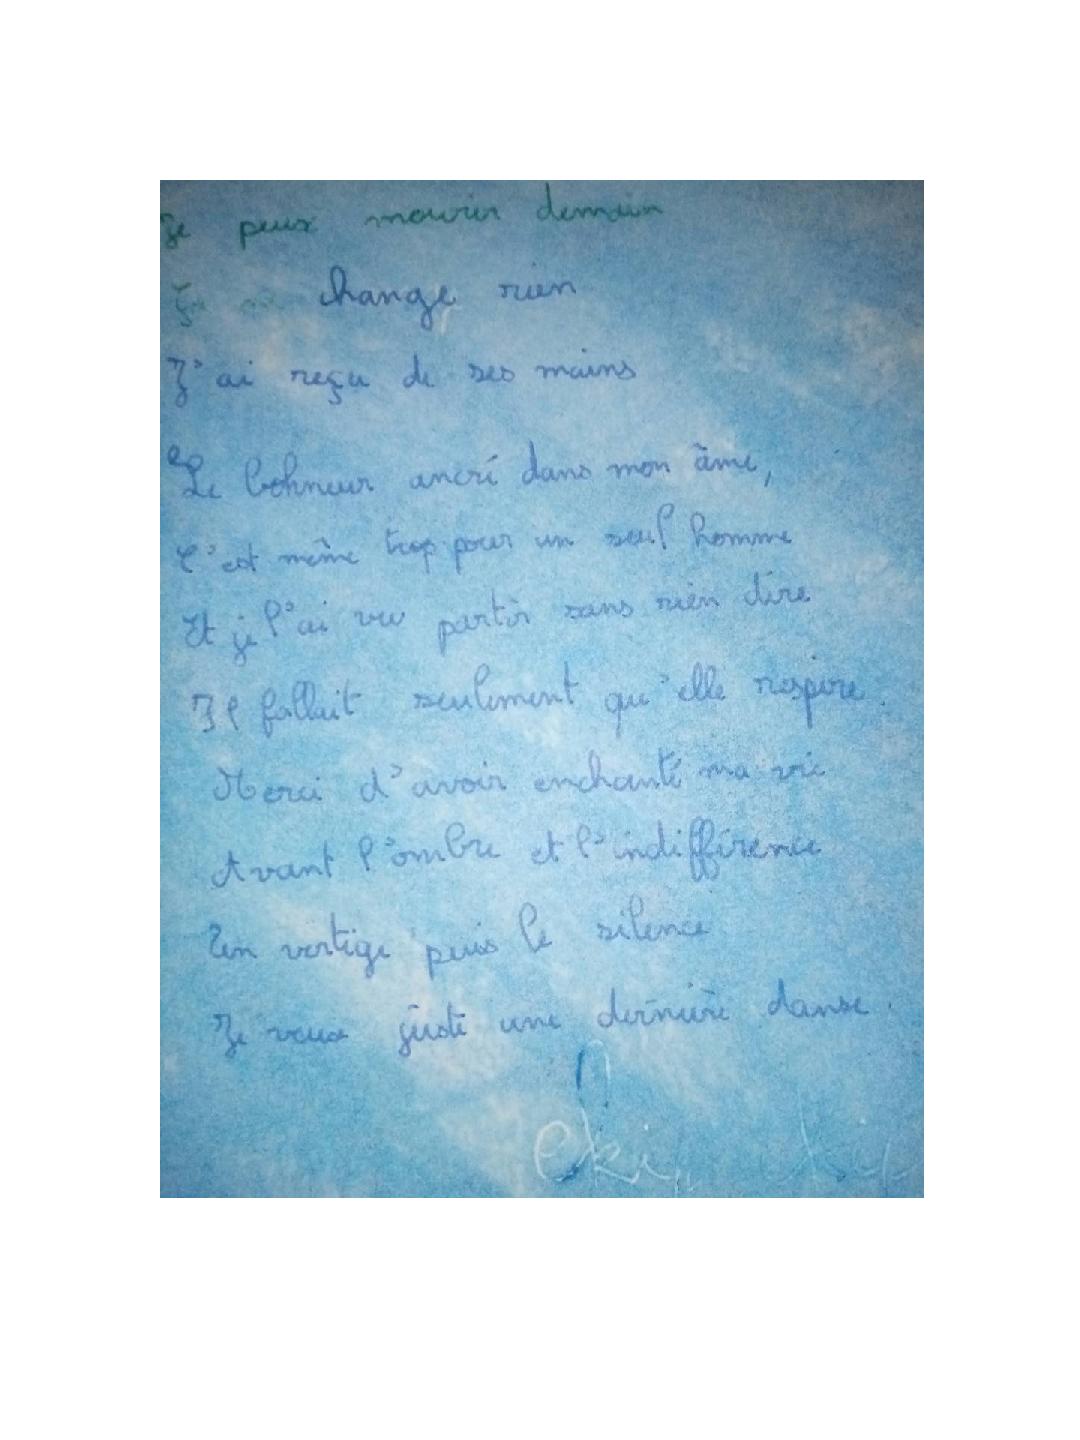 Je peux mourir demain
Ça ne change rien
J'ai reçu de ses mains
Le bohneur ancré dans mon âme,
C'est même trop pour un seul homme
Et je l'ai vu partir sans rien dire
Il fallait seulement qu'elle respire.
Merci d'avoir enchanté ma vie
Avant l'ombre et l'indifférence
Un vertige puis le silence
Je veux juste une dernière danse.